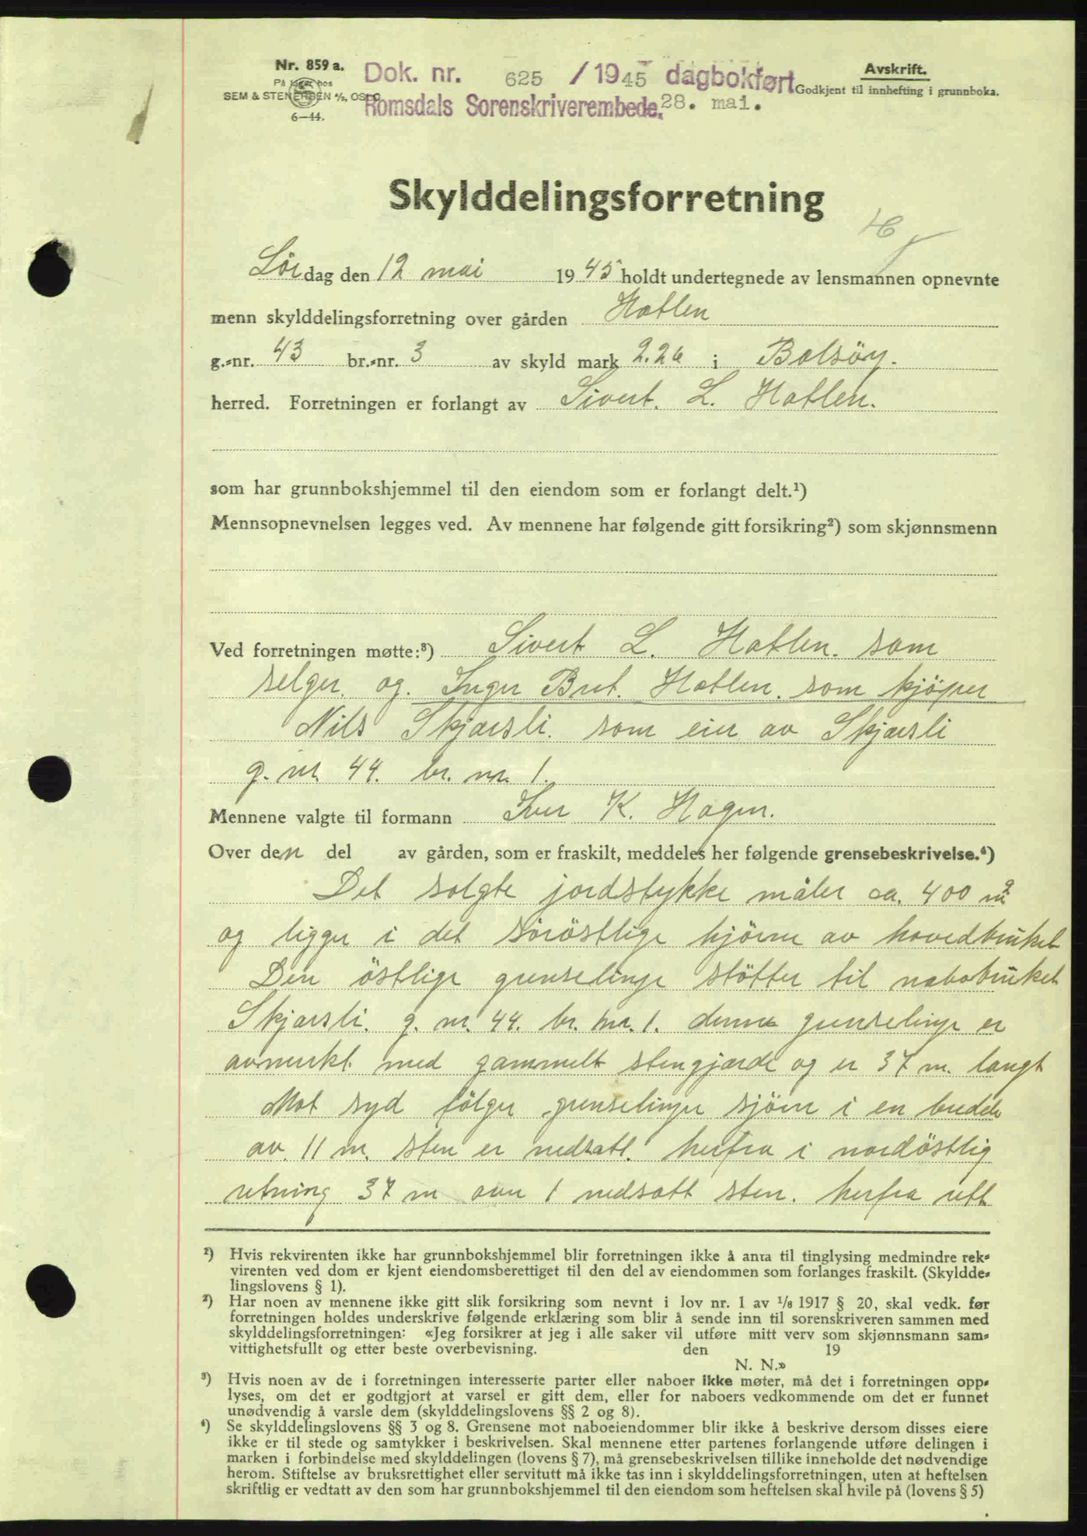 Nr. 859 a.
På lager hos
SEM & STENERSEN A/S, OSLO
6—44.
Dok. nr. 625 / 1945 dagbokført
Romsdals Sorenskriverembede. 28. mai.
Avskrift.
Godkjent til innhefting i grunnboka.
Skylddelingsforretning
Lördag den 12 mai 1945 holdt undertegnede av lensmannen opnevnte
menn skylddelingsforretning over gården Hatlen
g.-nr. 43 br.-nr. 3 av skyld mark 2.26 i Bolsöy.
herred. Forretningen er forlangt av Sivert. L. Hatlen.
som har grunnbokshjemmel til den eiendom som er forlangt delt.¹)
Mennsopnevnelsen legges ved. Av mennene har følgende gitt forsikring²) som skjønnsmenn
Ved forretningen møtte:³) Sivert L. Hatlen. som
selger. og. Inger Brt. Hatlen. som kjöper
Nils Skjærsli. som eier av Skjærsli
g. nr. 44. br. nr. 1.
Mennene valgte til formann Iver K. Hagen.
Over den del av gården, som er fraskilt, meddeles her følgende grensebeskrivelse.⁴)
Det solgte jordstykke måler ca. 400 m²
og ligger i det söröstlige hjörne av hovedbruket
Den östlige grenselinje stötter til nabobruket
Skjærsli. g. nr. 44. br. nr. 1. denne grenselinje er
avmerkt med gammelt stengjærde og er 37 m. langt
Mot syd fölger grenselinjer sjöen i en bredde
av 11 m. sten er nedsatt. herfra i nordöstlig
retning 37 m over 1 nedsatt sten. herfra rett
¹) Hvis rekvirenten ikke har grunnbokshjemmel blir forretningen ikke å anta til tinglysing medmindre rek-
virenten ved dom er kjent eiendomsberettiget til den del av eiendommen som forlanges fraskilt. (Skyldde-
lingslovens § 1).
²) Har noen av mennene ikke gitt slik forsikring som nevnt i lov nr. 1 av 1/6 1917 § 20, skal vedk. før
forretningen holdes underskrive følgende erklæring som blir å sende inn til sorenskriveren sammen med
skylddelingsforretningen: «Jeg forsikrer at jeg i alle saker vil utføre mitt verv som skjønnsmann sam-
vittighetsfullt og etter beste overbevisning. den 19
N. N.»
³) Hvis noen av de i forretningen interesserte parter eller naboer ikke møter, må det i forretningen opp-
lyses, om det er godtgjort at varsel er gitt dem, eller for naboers vedkommende om det er funnet
unødvendig å varsle dem (skylddelingslovens §§ 2 og 8).
⁴) Se skylddelingslovens §§ 3 og 8. Grensene mot naboeiendommer blir ikke å beskrive dersom disses eiere
ikke er til stede og samtykker i beskrivelsen. Skal mennene etter partenes forlangende utføre delingen i
marken i forbindelse med skylddelingen (lovens § 7), må grensebeskrivelsen tillike inneholde det nødvendige
herom. Stiftelse av bruksrettighet eller servitutt må ikke tas inn i skylddelingsforretningen, uten at heftelsen
skriftlig er vedtatt av den som har grunnbokshjemmel til den eiendom som heftelsen skal hvile på (lovens § 5)